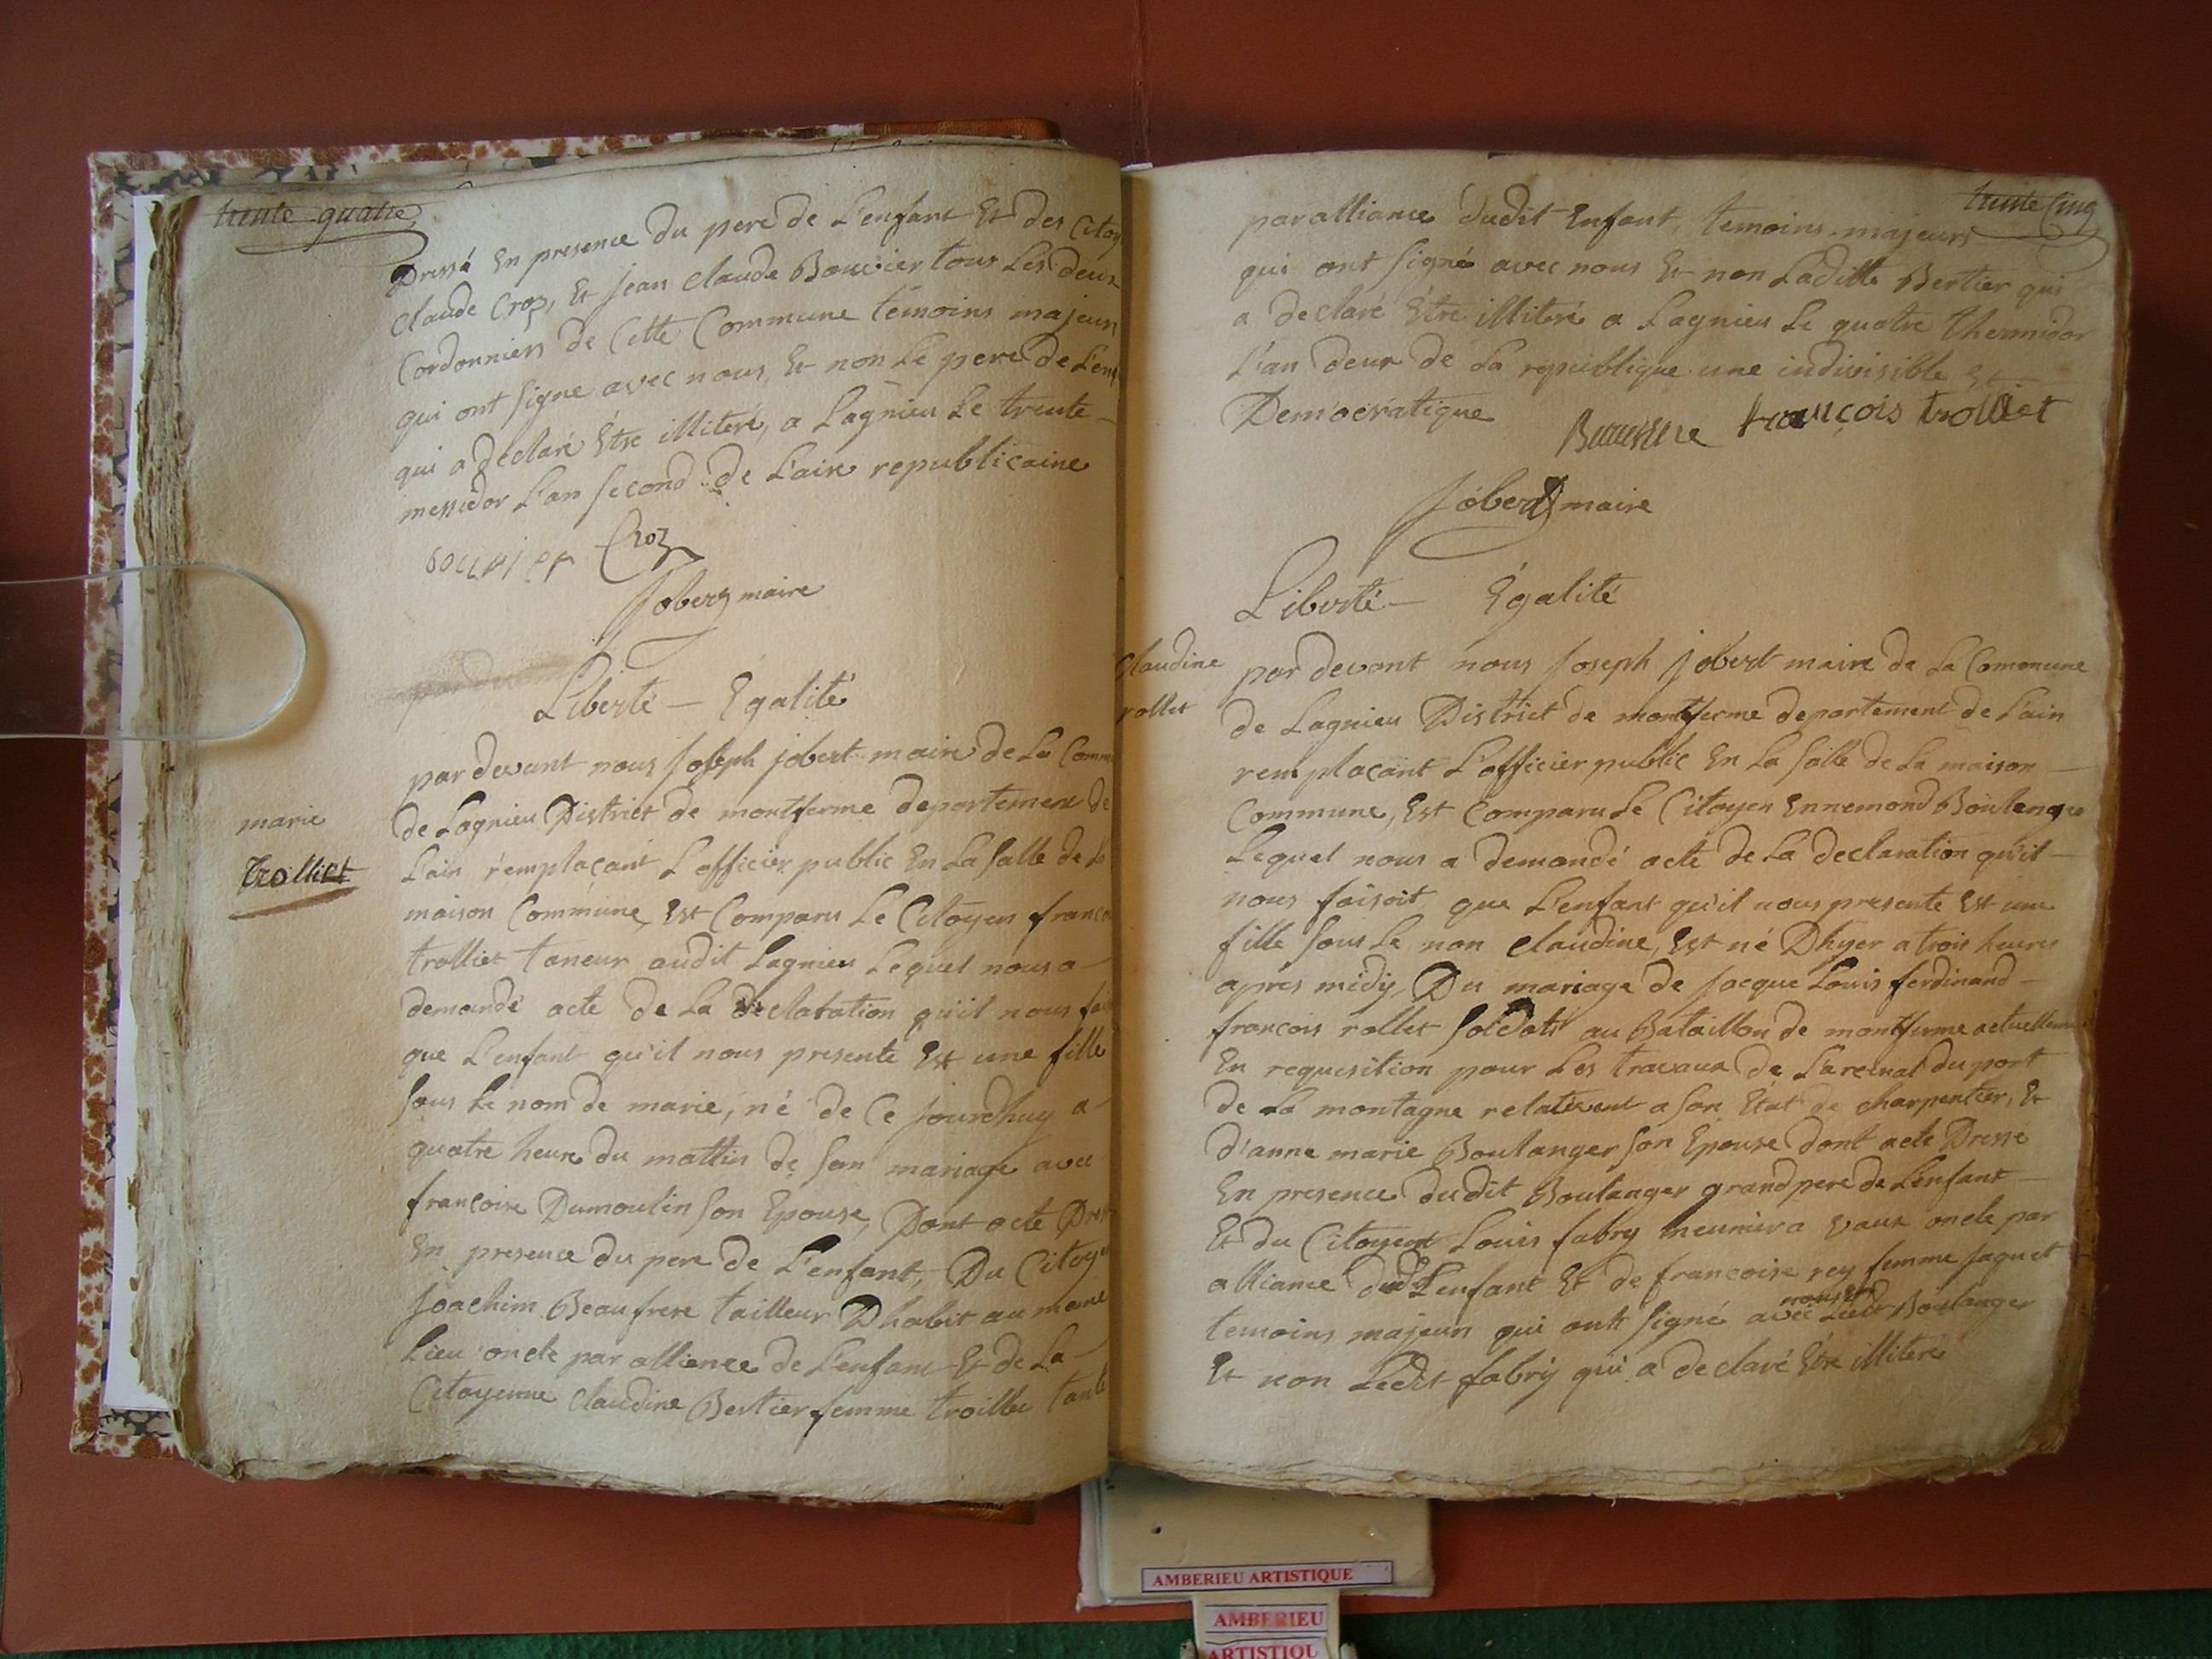 trente quatre
Dressé En presence du pere de L'enfant Et des Citoy
Claude Croz, Et jean Claude Bouvier tous Les deux
Cordonniers de Cette Commune témoins majeurs
qui ont signe avec nous, Et non Le pere de L'enf
qui a declaré Être illiteré, a Lagnieu Le trente
messidor L'an second de L'aire republicaine
bouvier Croz
Jobert maire
Liberté — Egalité
marie
trolliet
par devant nous Joseph jobert maire de La Comm
de Lagnieu District de montferme departement de
L'ain remplaçant L'officier public En La salle de La
maison Commune, Est Comparu Le Citoyen franco
trolliet taneur audit Lagnieu Lequel nous a
demandé acte de La declaration qu'il nous fais
que L'enfant qu'il nous presente Est une fille
sous Le nom de marie, né de Ce jourdhuy a
quatre heure du mattin de son mariage avec
françoise Dumoulin son Epouse, Dont acte Dres
En presence du pere de L'enfant, Du Citoye
Joachim Beaufrere tailleur Dhabit au meme
Lieu oncle par allience de L'enfant Et de La
Citoyenne Claudine Bertier femme troillet tante
trente Cinq
par alliance dudit Enfant, temoins majeurs
qui ont signé avec nous Et non Laditte Bertier qui
a declaré Être illiteré a Lagnieu Le quatre thermidor
L'an deux de La republique une indivisible Et
Democratique
Beaufrere françois trolliet
Jobert maire
Liberté — Égalité
Claudine
rollet
par devant nous Joseph jobert maire de La Commune
de Lagnieu District de montferme departement de L'ain
remplaçant L'officier public En La salle de La maison
Commune, Est Comparu Le Citoyen Ennemond Boulanger
Lequel nous a demandé acte de La declaration qu'il
nous faisoit, que L'enfant qu'il nous presente Est une
fille sous Le non Claudine, Est né Dhyer a trois heures
après midy, Du mariage de Jacque Louis ferdinand
francois rollet soldats au Bataillon de montferme actuellement
En requisition pour Les travaux de L'arcenal du port
de La montagne relativent a son État de charpentier, Et
d'anne marie Boulanger son Épouse dont acte Dressé
En presence dudit Boulanger grand pere de L'enfant
Et du Citoyent Louis fabry meunier a vaux oncle par
alliance dudt L'enfant Et de francoise rey femme jaquet
temoins majeurs qui ont signé avec nous Et Ledt Boulanger
Et non Ledit fabry qui a declaré Etre illiteré
AMBERIEU ARTISTIQUE
AMBERIEU
ARTISTIQU